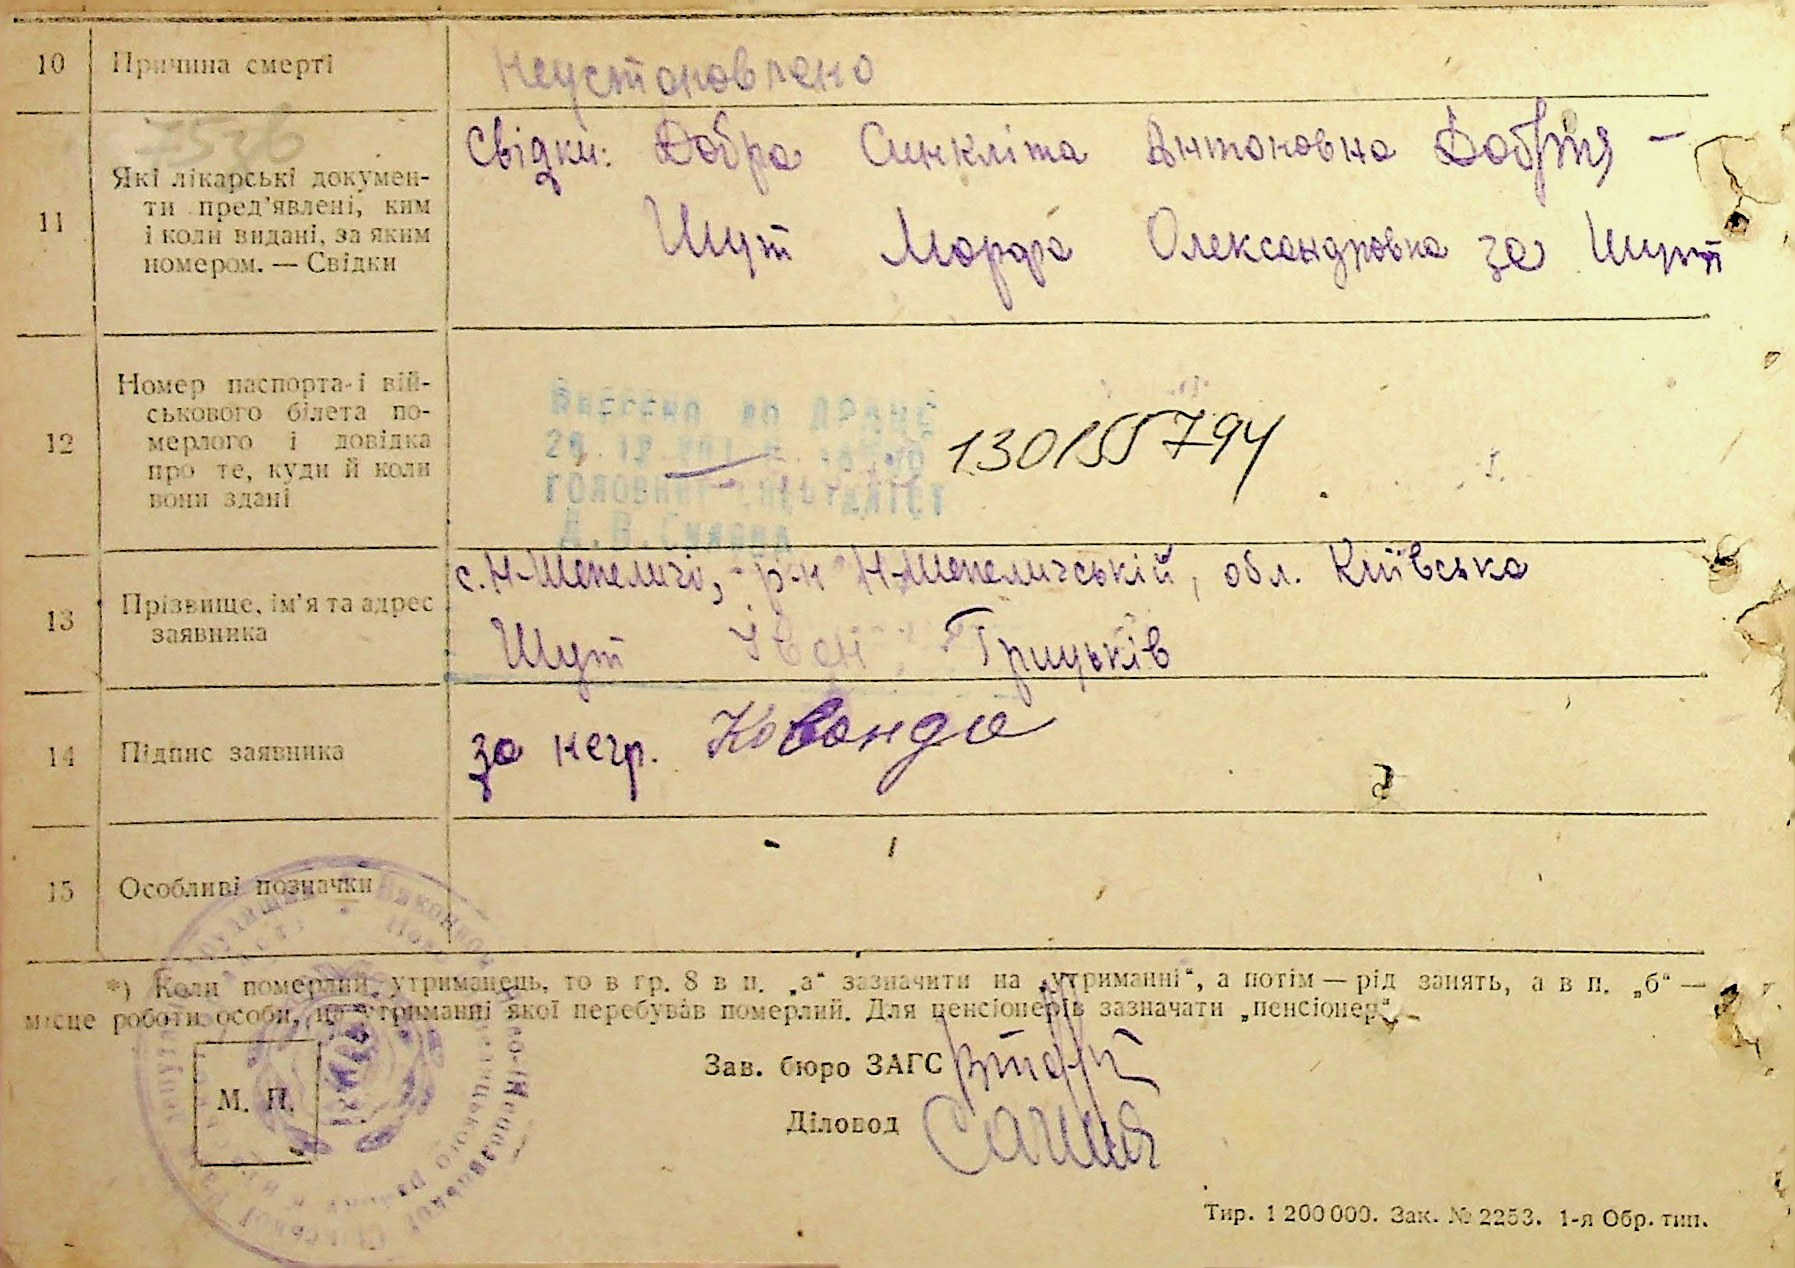 10 Причина смерті неустоновлено
7536
11 Які лікарські докумен-
ти пред'явлені, ким
і коли видані, за яким
номером. — Свідки
Свідки: Добра Синкліта Антоновна
Шут Марфа Олександровна за Шут
12 Номер паспорта і вій-
ськового білета по-
мерлого і довідка
про те, куди й коли
вони здані
Внесено до ДРАЦС
головний спеціаліст
130155794
13 Прізвище, ім'я та адрес
заявника
с. Н-Шепеличі, р-н Н-Шепеличській, обл. Київська
Шут Іван Грицьків
14 Підпис заявника за негр. Кованда
15 Особливі позначки
*) Коли померлий утриманець, то в гр. 8 в п. „а“ зазначити на „утриманні“, а потім — рід занять, а в п. „б“ —
місце роботи особи, на утриманні якої перебував померлий. Для пенсіонерів зазначати „пенсіонер“.
Зав. бюро ЗАГС
М. П.
Діловод
Тир. 1 200 000. Зак. № 2253. 1-я Обр. тип.